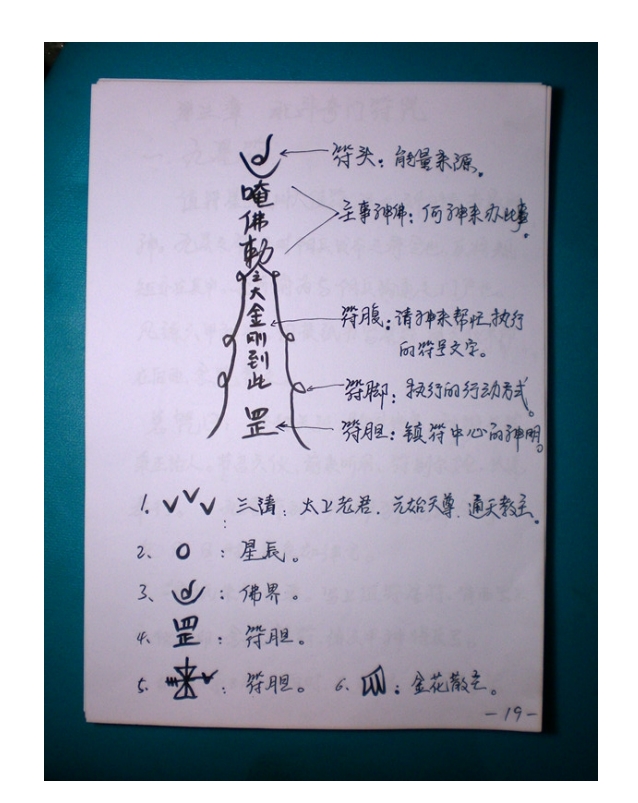 符头：能量来源。
唵佛勅
主事神佛：何神来办此事。
之大金刚到此
符腹：请神来帮忙执行
的符号文字。
符脚：执行的行动方式。
罡
符胆：镇符中心的神明。
1. 三清：太上老君．元始天尊．通天教主。
2、 O ：星辰。
3、 ：佛界。
4、 罡 ：符胆。
5、 ：符胆。 6、 ：金花教主。
-19-